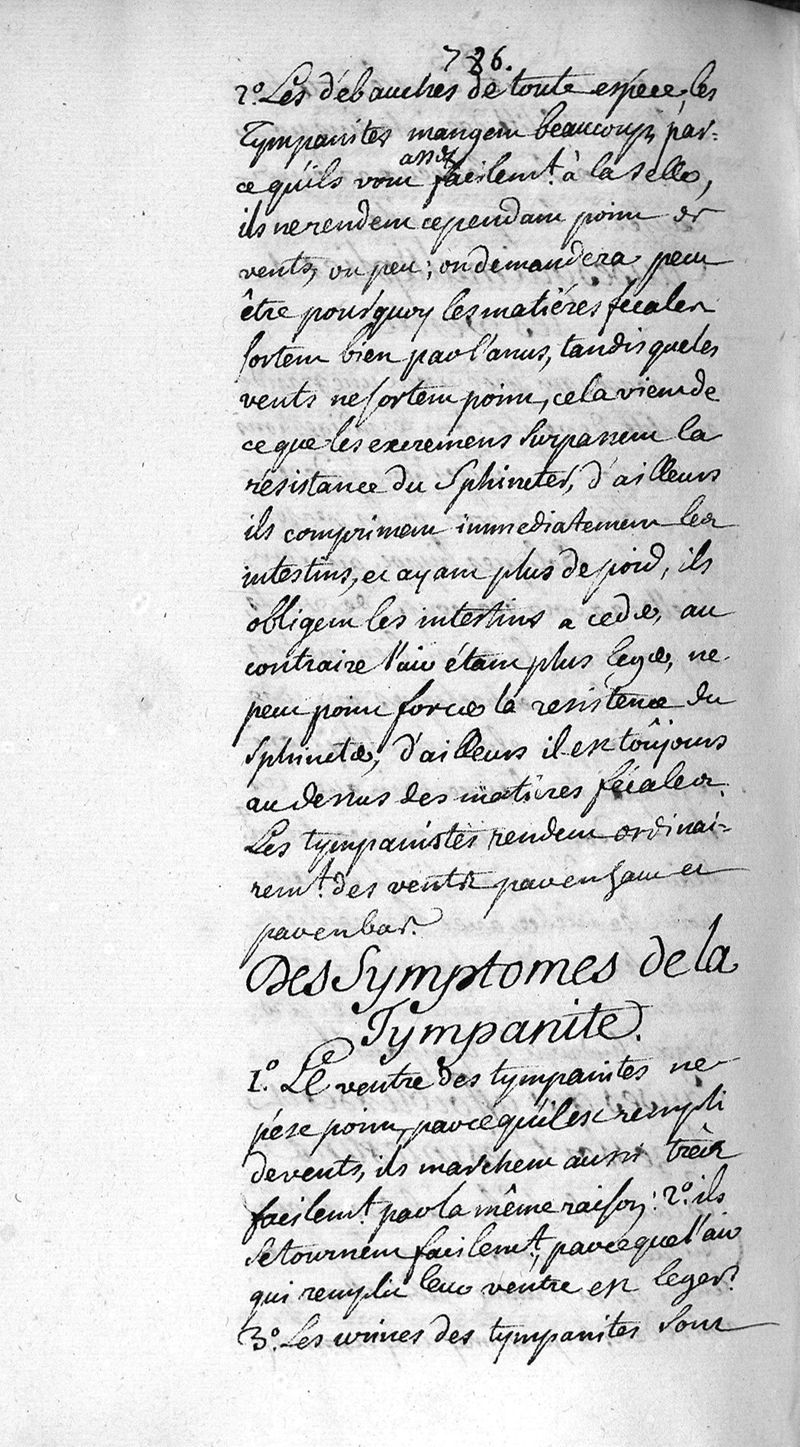 786.
2.° Les débauches de toute espéce, les
Tympanites mangent beaucoup, par=
ce qu'ils vont assez facilemt. à la selle,
ils ne rendent cependant point de
vents, ou peu; on demandera peut
être pourquoy les matiéres fécales
sortent bien par l'anus, tandis que les
vents ne sortent point, cela vient de
ce que les excremens surpassent la
résistance du Sphincter, d'ailleurs
ils compriment immediatement les
intestins, et ayant plus de poid, ils
obligent les intestins a ceder, au
contraire l'air étant plus leger, ne
peut point forcer la resistence du
Sphincter, d'ailleurs il est toûjours
au dessus des matiéres fécales.
Les tympanistes rendent ordinai=
remt. des vents par en haut et
par en bas.
Des Symptomes de la
Tympanite.
1.° Le ventre des tympanites ne
pése point, parce qu'il est rempli
de vents, ils marchent aussi très
facilemt. par la même raison: 2.° ils
se tournent facilemt., parce que l'air
qui remplit leur ventre est leger.
3.° Les urines des tympanites sont